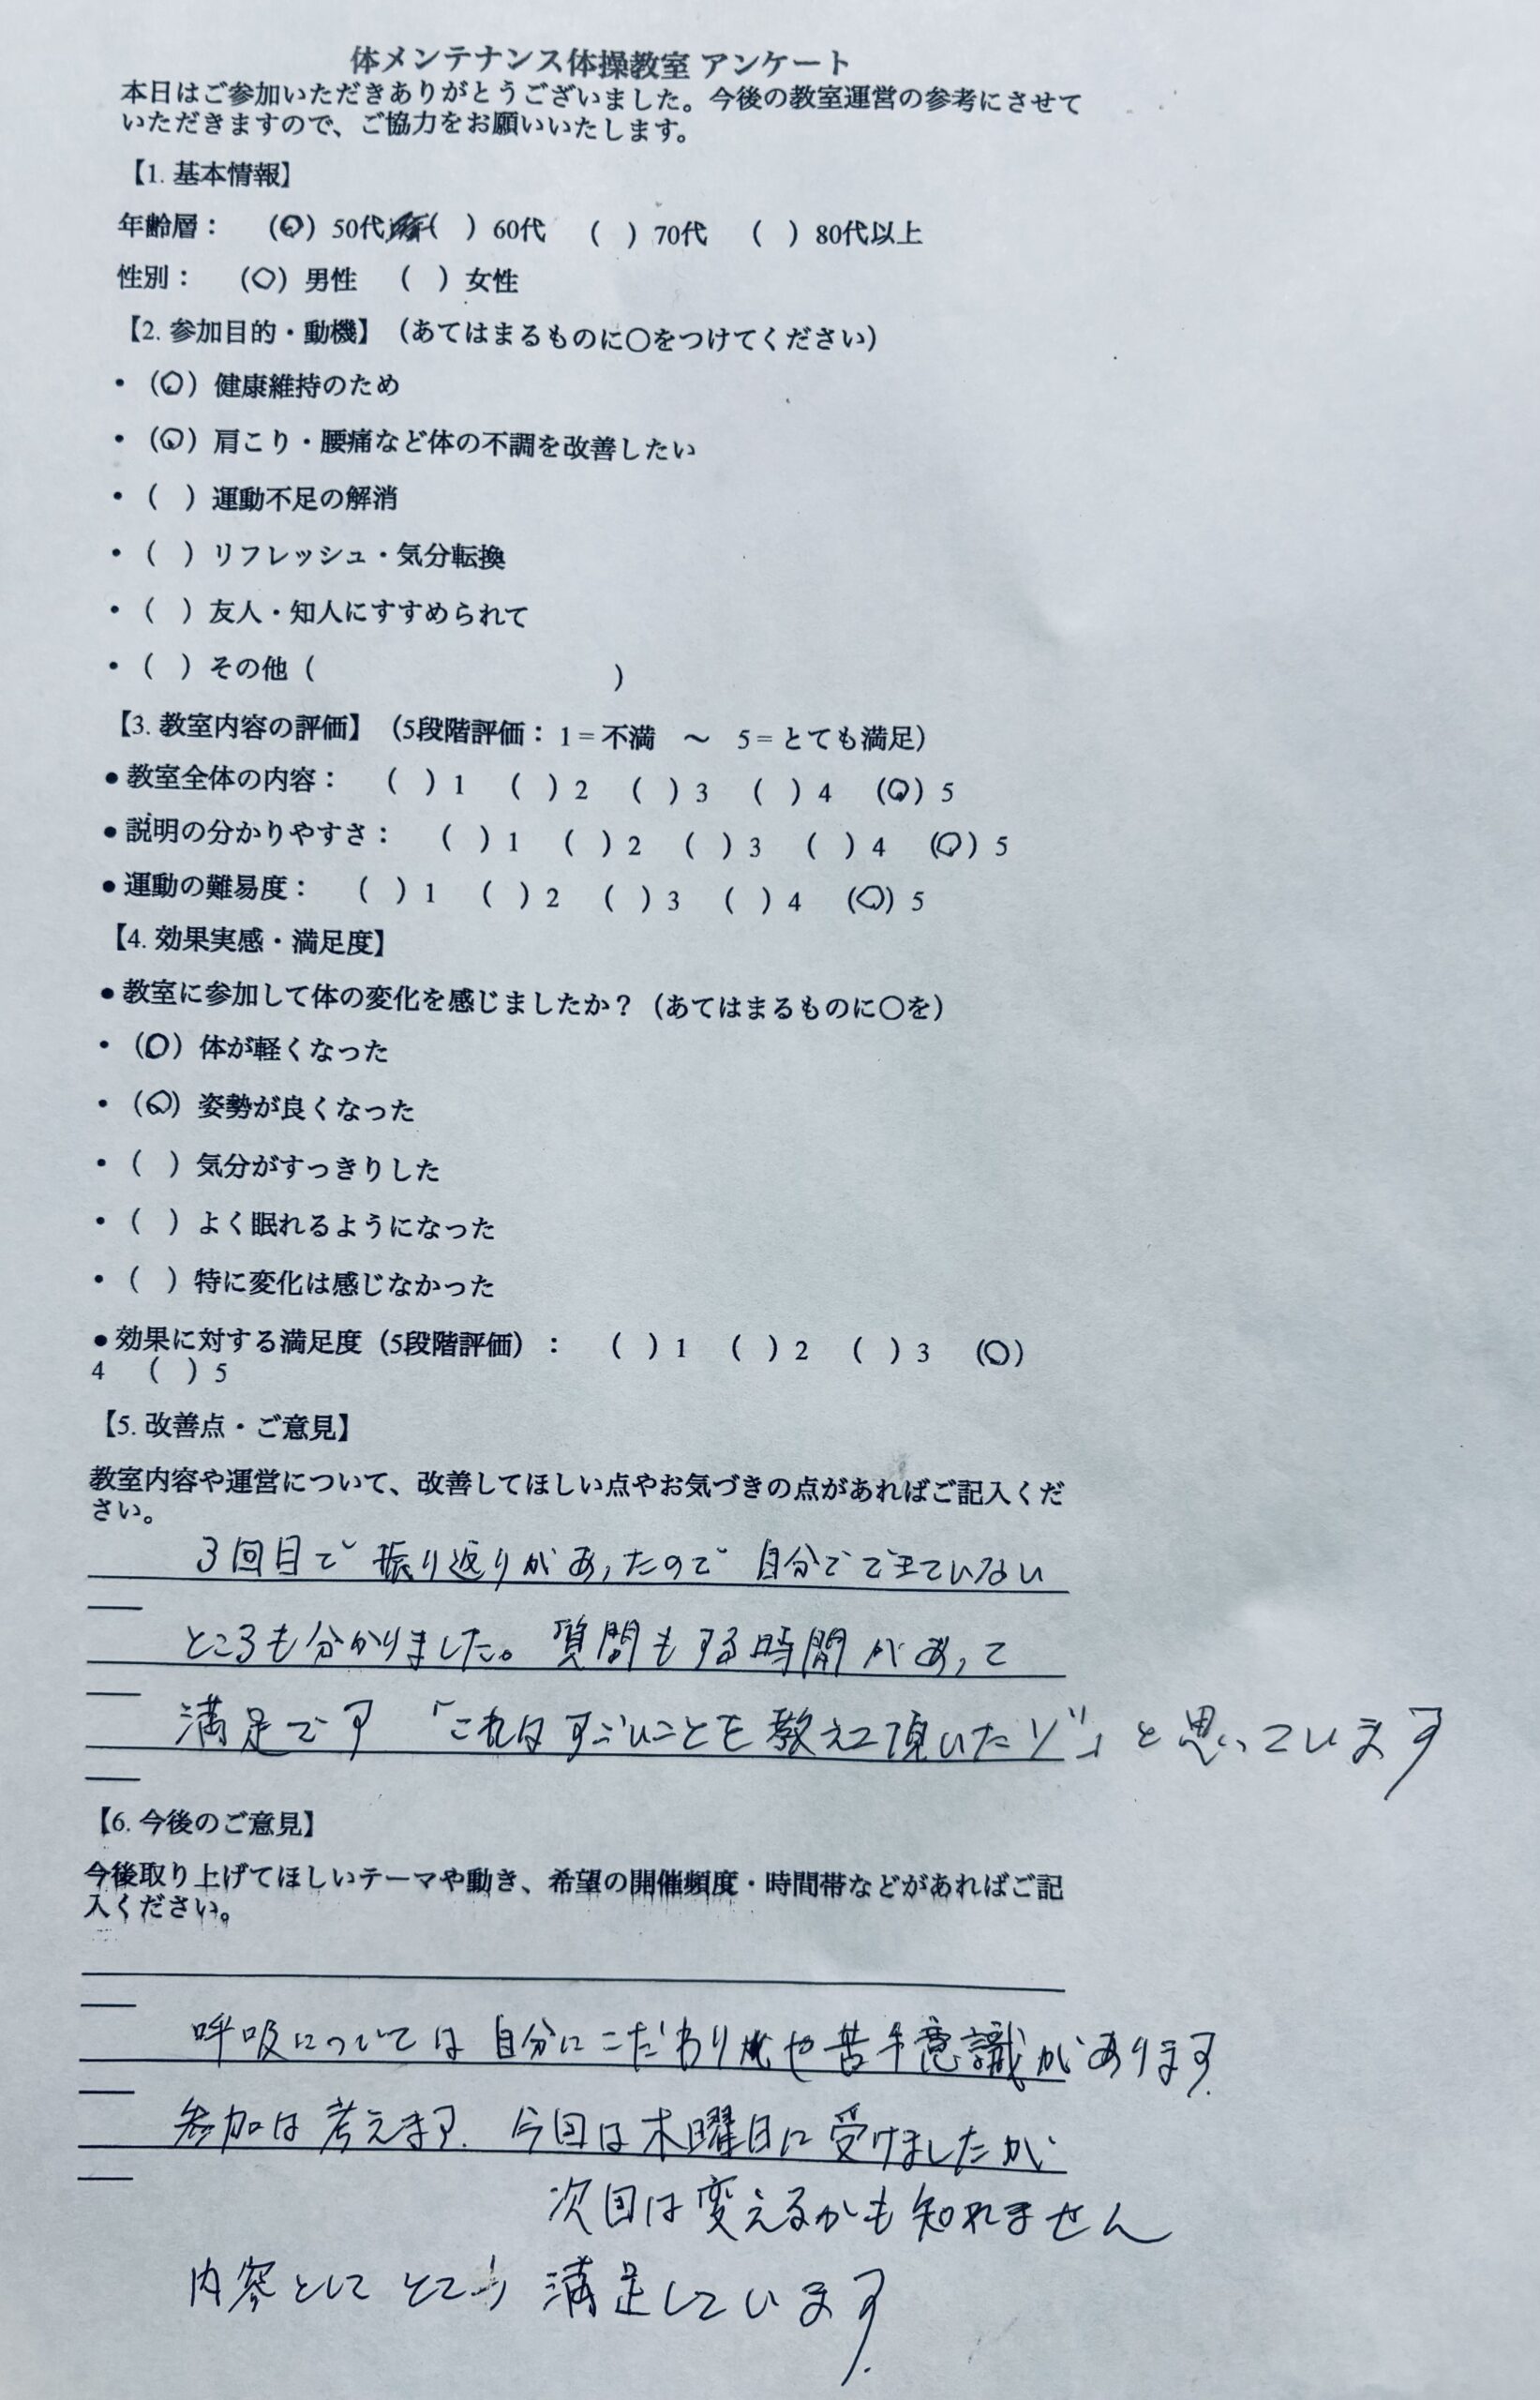 体メンテナンス体操教室 アンケート
本日はご参加いただきありがとうございました。今後の教室運営の参考にさせて
いただきますので、ご協力をお願いいたします。
【1. 基本情報】
年齢層： （○）50代 （ ）60代 （ ）70代 （ ）80代以上
性別： （○）男性 （ ）女性
【2. 参加目的・動機】（あてはまるものに○をつけてください）
・（○）健康維持のため
・（○）肩こり・腰痛など体の不調を改善したい
・（ ）運動不足の解消
・（ ）リフレッシュ・気分転換
・（ ）友人・知人にすすめられて
・（ ）その他（ ）
【3. 教室内容の評価】（5段階評価：1 = 不満 ～ 5 = とても満足）
●教室全体の内容： （ ）1 （ ）2 （ ）3 （ ）4 （○）5
●説明の分かりやすさ： （ ）1 （ ）2 （ ）3 （ ）4 （○）5
●運動の難易度： （ ）1 （ ）2 （ ）3 （ ）4 （○）5
【4. 効果実感・満足度】
●教室に参加して体の変化を感じましたか？（あてはまるものに○を）
・（○）体が軽くなった
・（○）姿勢が良くなった
・（ ）気分がすっきりした
・（ ）よく眠れるようになった
・（ ）特に変化は感じなかった
●効果に対する満足度（5段階評価）： （ ）1 （ ）2 （ ）3 （○）
4 （ ）5
【5. 改善点・ご意見】
教室内容や運営について、改善してほしい点やお気づきの点があればご記入くだ
さい。
3回目で 振り返りがあったので 自分でできていない
ところも分かりました。質問もする時間があって
満足です 「これはすごいことを教えて頂いたゾ」と思っています
【6. 今後のご意見】
今後取り上げてほしいテーマや動き、希望の開催頻度・時間帯などがあればご記
入ください。
呼吸については 自分にこだわりや苦手意識があります
参加は考えます. 今回は木曜日に受けましたが
次回は変えるかも知れません
内容として とても 満足しています.